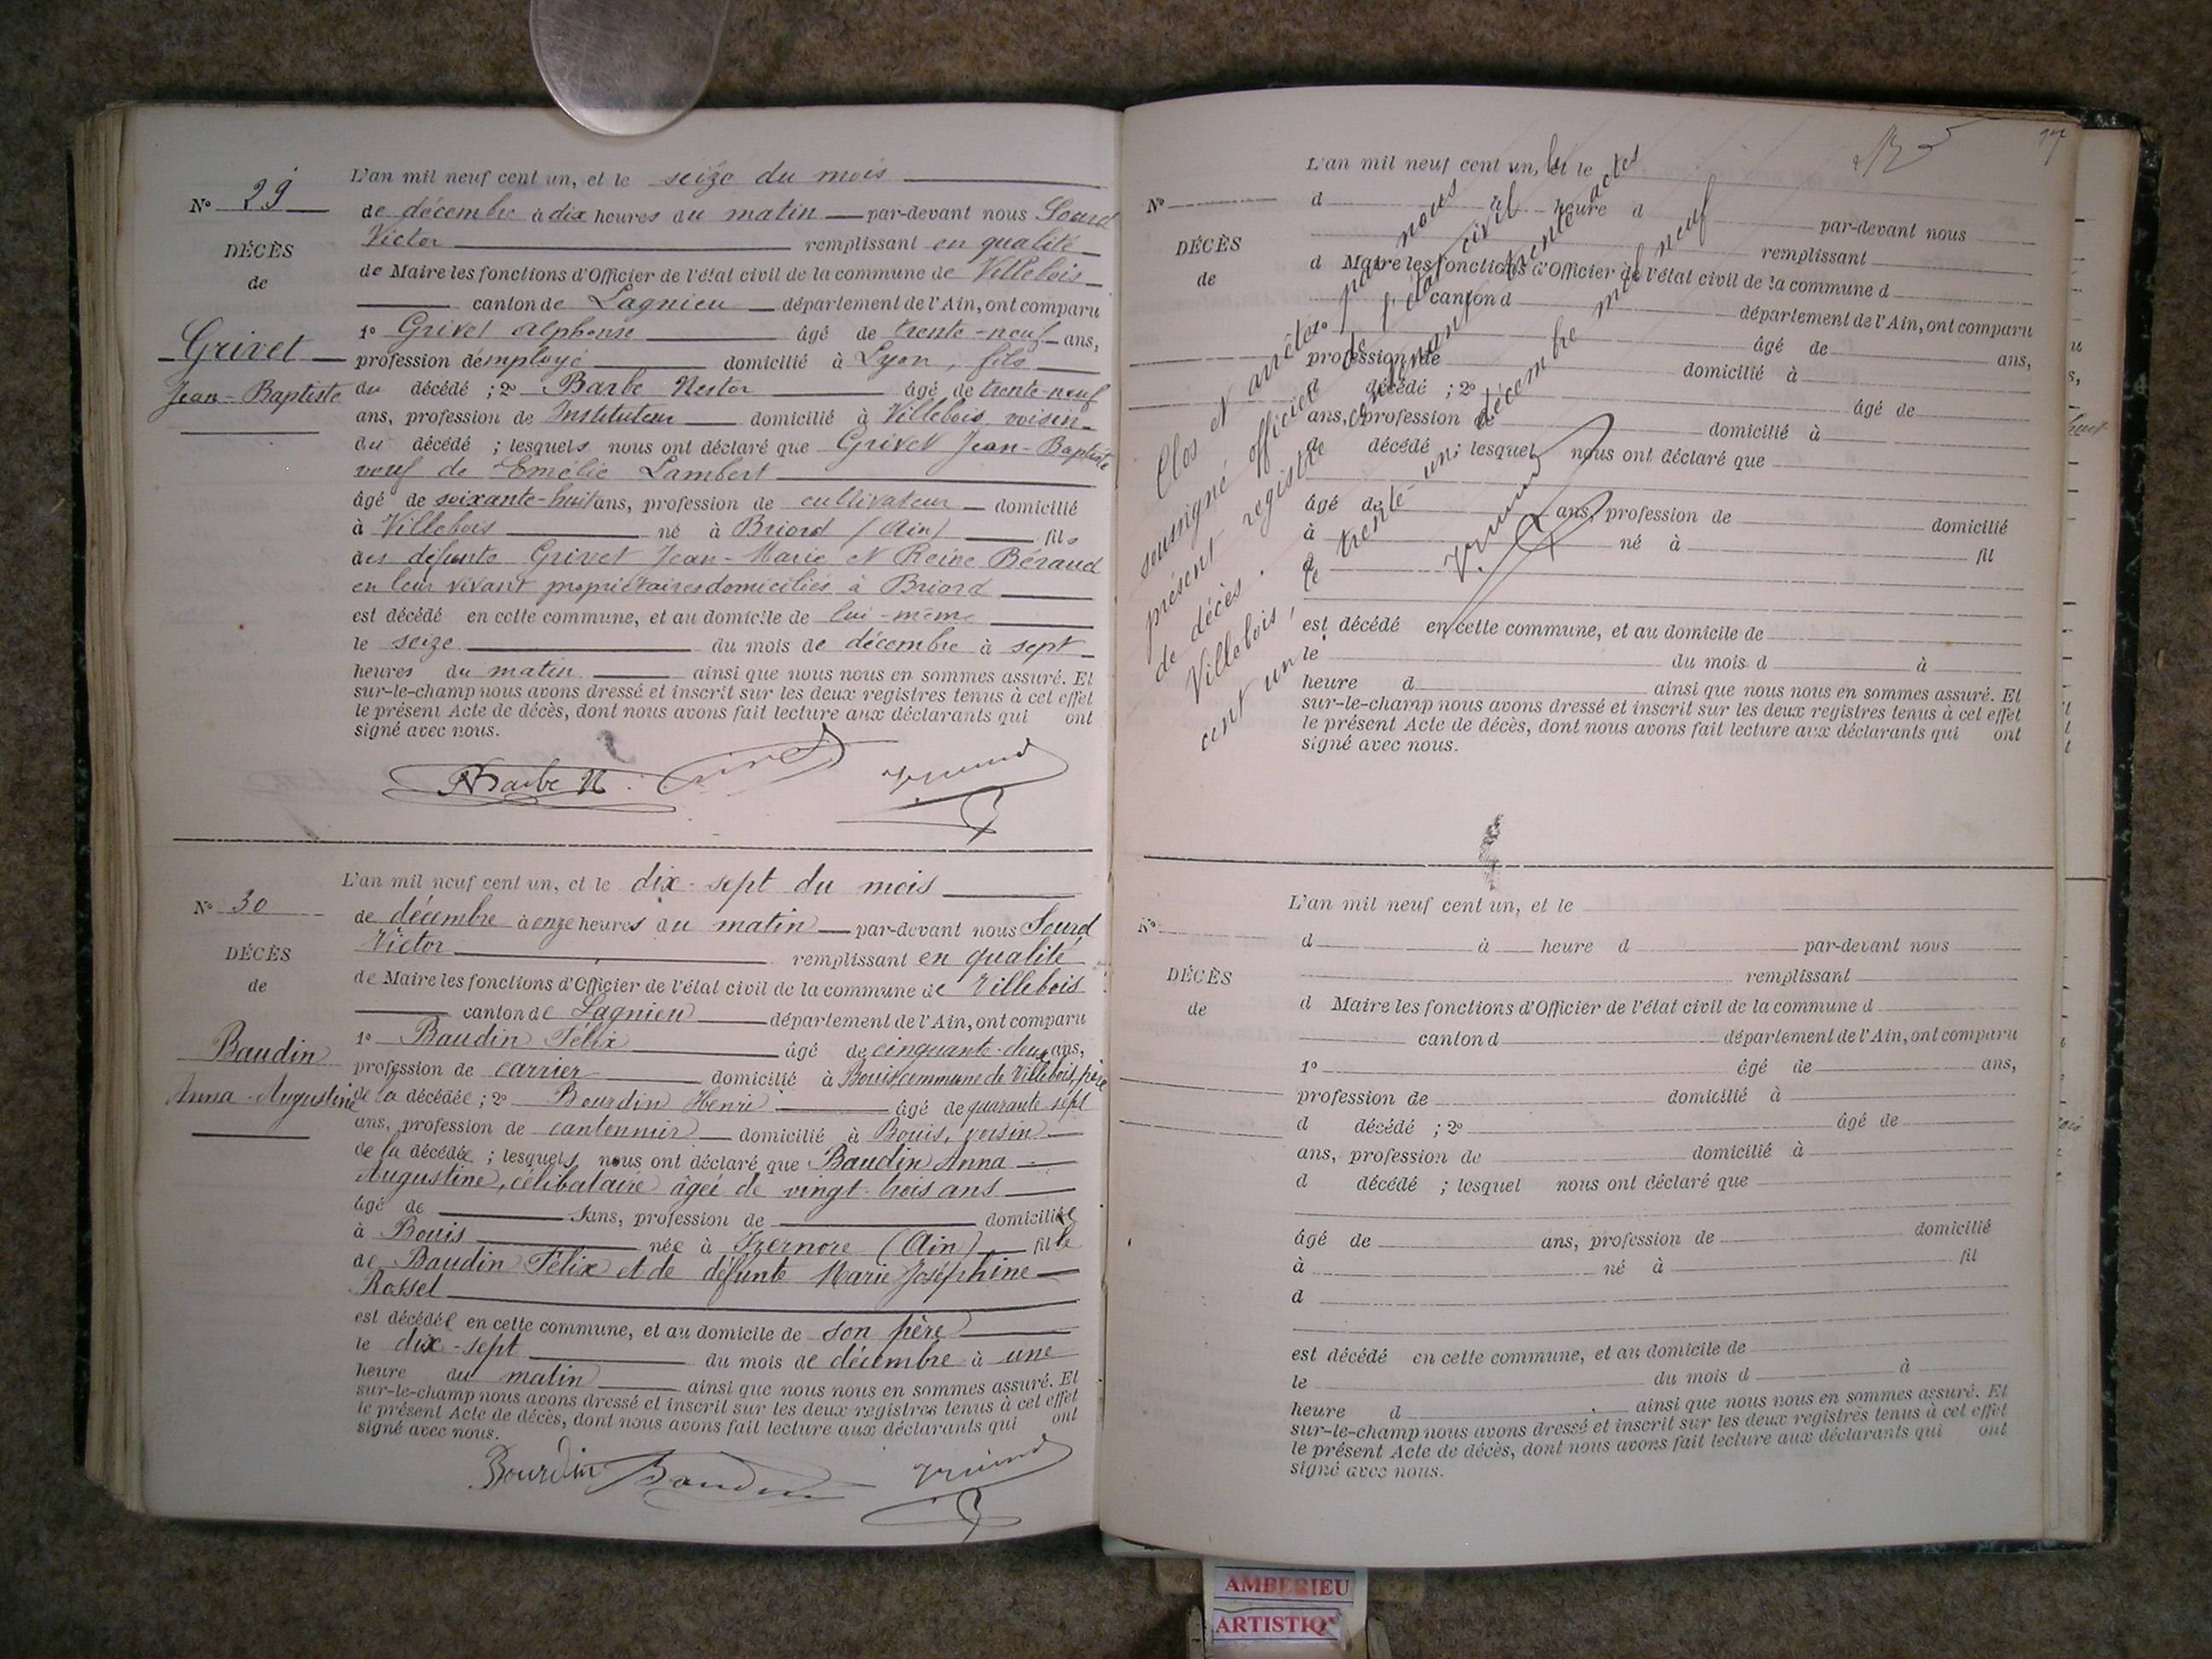 L'an mil neuf cent un, et le seize du mois
N° 29
de décembre à dix heures du matin par-devant nous Sourd
Victor remplissant en qualité
DÉCÈS
de
de Maire les fonctions d'Officier de l'état civil de la commune de Villebois
canton de Lagnieu département de l'Ain, ont comparu
Grivet
Jean-Baptiste
1° Grivet Alphonse âgé de trente-neuf ans,
profession d'employé domicilié à Lyon, fils
du décédé ; 2° Barbe Nestor âgé de trente-neuf
ans, profession de Instituteur domicilié à Villebois, voisin
du décédé ; lesquels nous ont déclaré que Grivet Jean-Baptiste
veuf de Emélie Lambert
âgé de soixante-huit ans, profession de cultivateur domicilié
à Villebois né à Briord (Ain) fils
des défunts Grivet Jean-Marie et Reine Béraud
en leur vivant propriétaires domiciliés à Briord
est décédé en cette commune, et au domicile de lui-même
le seize du mois de décembre à sept
heures du matin ainsi que nous nous en sommes assuré. Et
sur-le-champ nous avons dressé et inscrit sur les deux registres tenus à cet effet
le présent Acte de décès, dont nous avons fait lecture aux déclarants qui ont
signé avec nous.
Barbe N
L'an mil neuf cent un, et le dix-sept du mois
N° 30
de décembre à onze heures du matin par-devant nous Sourd
Victor remplissant en qualité
DÉCÈS
de
de Maire les fonctions d'Officier de l'état civil de la commune de Villebois
canton de Lagnieu département de l'Ain, ont comparu
Baudin
Anna-Augustine
1° Baudin Félix âgé de cinquante-deux ans,
profession de carrier domicilié à Bouis commune de Villebois, père
de la décédée ; 2° Bourdin Henri âgé de quarante-sept
ans, profession de cantonnier domicilié à Bouis, voisin
de la décédée ; lesquels nous ont déclaré que Baudin Anna
Augustine, célibataire âgée de vingt-trois ans
âgé de ans, profession de domiciliée
à Bouis née à Izernore (Ain) fille
de Baudin Félix et de défunte Marie Joséphine
Rossel
est décédée en cette commune, et au domicile de son père
le dix-sept du mois de décembre à une
heure du matin ainsi que nous nous en sommes assuré. Et
sur-le-champ nous avons dressé et inscrit sur les deux registres tenus à cet effet
le présent Acte de décès, dont nous avons fait lecture aux déclarants qui ont
signé avec nous.
Bourdin Baudin
97
L'an mil neuf cent un, et le
N°
d à heure d par-devant nous
remplissant
DÉCÈS
de
d Maire les fonctions d'Officier de l'état civil de la commune d
canton d département de l'Ain, ont comparu
1° âgé de ans,
profession de domicilié à
d décédé ; 2° âgé de
ans, profession de domicilié à
d décédé ; lesquel nous ont déclaré que
âgé de ans, profession de domicilié
à né à fil
d
est décédé en cette commune, et au domicile de
le du mois d à
heure d ainsi que nous nous en sommes assuré. Et
sur-le-champ nous avons dressé et inscrit sur les deux registres tenus à cet effet
le présent Acte de décès, dont nous avons fait lecture aux déclarants qui ont
signé avec nous.
Clos et arrêté par nous
soussigné officier de l'état civil le
présent registre contenant trente actes
de décès.
Villebois, le trente-un décembre mil neuf
cent un
L'an mil neuf cent un, et le
N°
d à heure d par-devant nous
remplissant
DÉCÈS
de
d Maire les fonctions d'Officier de l'état civil de la commune d
canton d département de l'Ain, ont comparu
1° âgé de ans,
profession de domicilié à
d décédé ; 2° âgé de
ans, profession de domicilié à
d décédé ; lesquel nous ont déclaré que
âgé de ans, profession de domicilié
à né à fil
d
est décédé en cette commune, et au domicile de
le du mois d à
heure d ainsi que nous nous en sommes assuré. Et
sur-le-champ nous avons dressé et inscrit sur les deux registres tenus à cet effet
le présent Acte de décès, dont nous avons fait lecture aux déclarants qui ont
signé avec nous.
AMBERIEU
ARTISTIQ